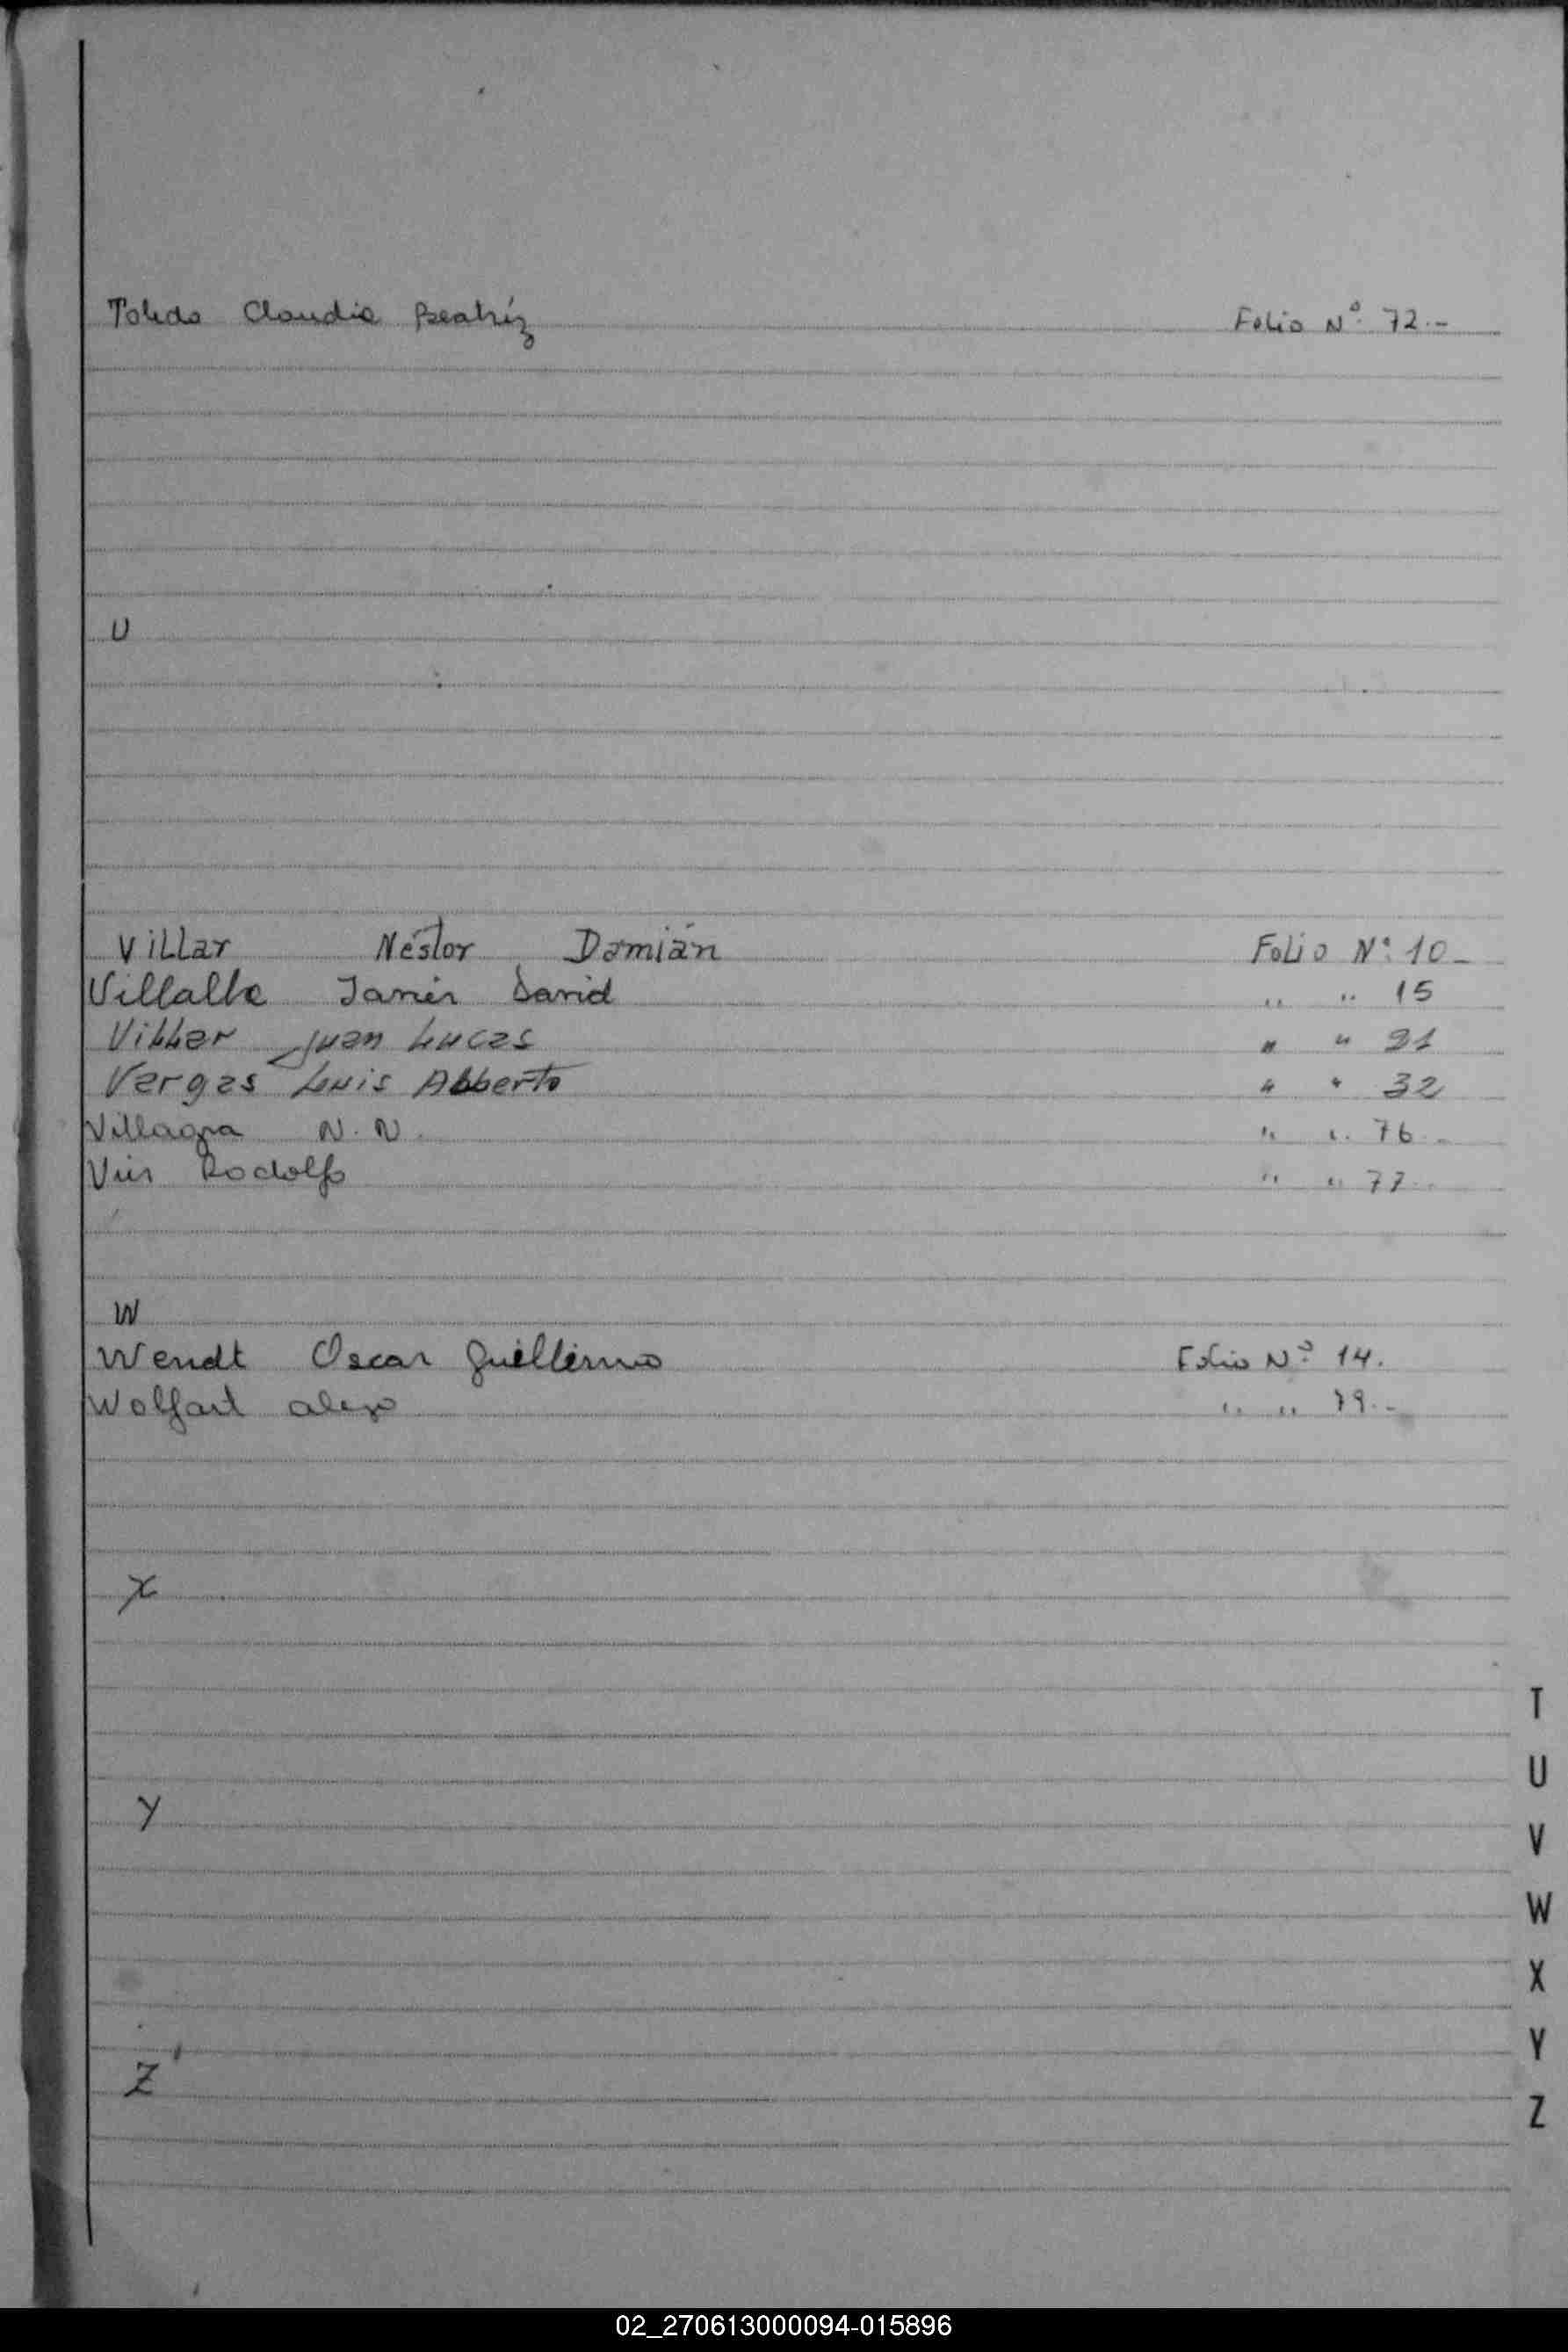 Toledo Claudia Beatríz Folio Nº 72.-
U
Villar Néstor Damián Folio Nº 10-
Villalba Javier David " " 15
Villar Juan Lucas " " 21
Vargas Luis Alberto " " 32
Villagra N.N. " " 76.-
Vier Rodolfo " " 77.-
W
Wendt Oscar Guillermo Folio Nº 14.
Wolfart " " 79.-
X
Y
Z
T
U
V
W
X
Y
Z
02_270613000094-015896